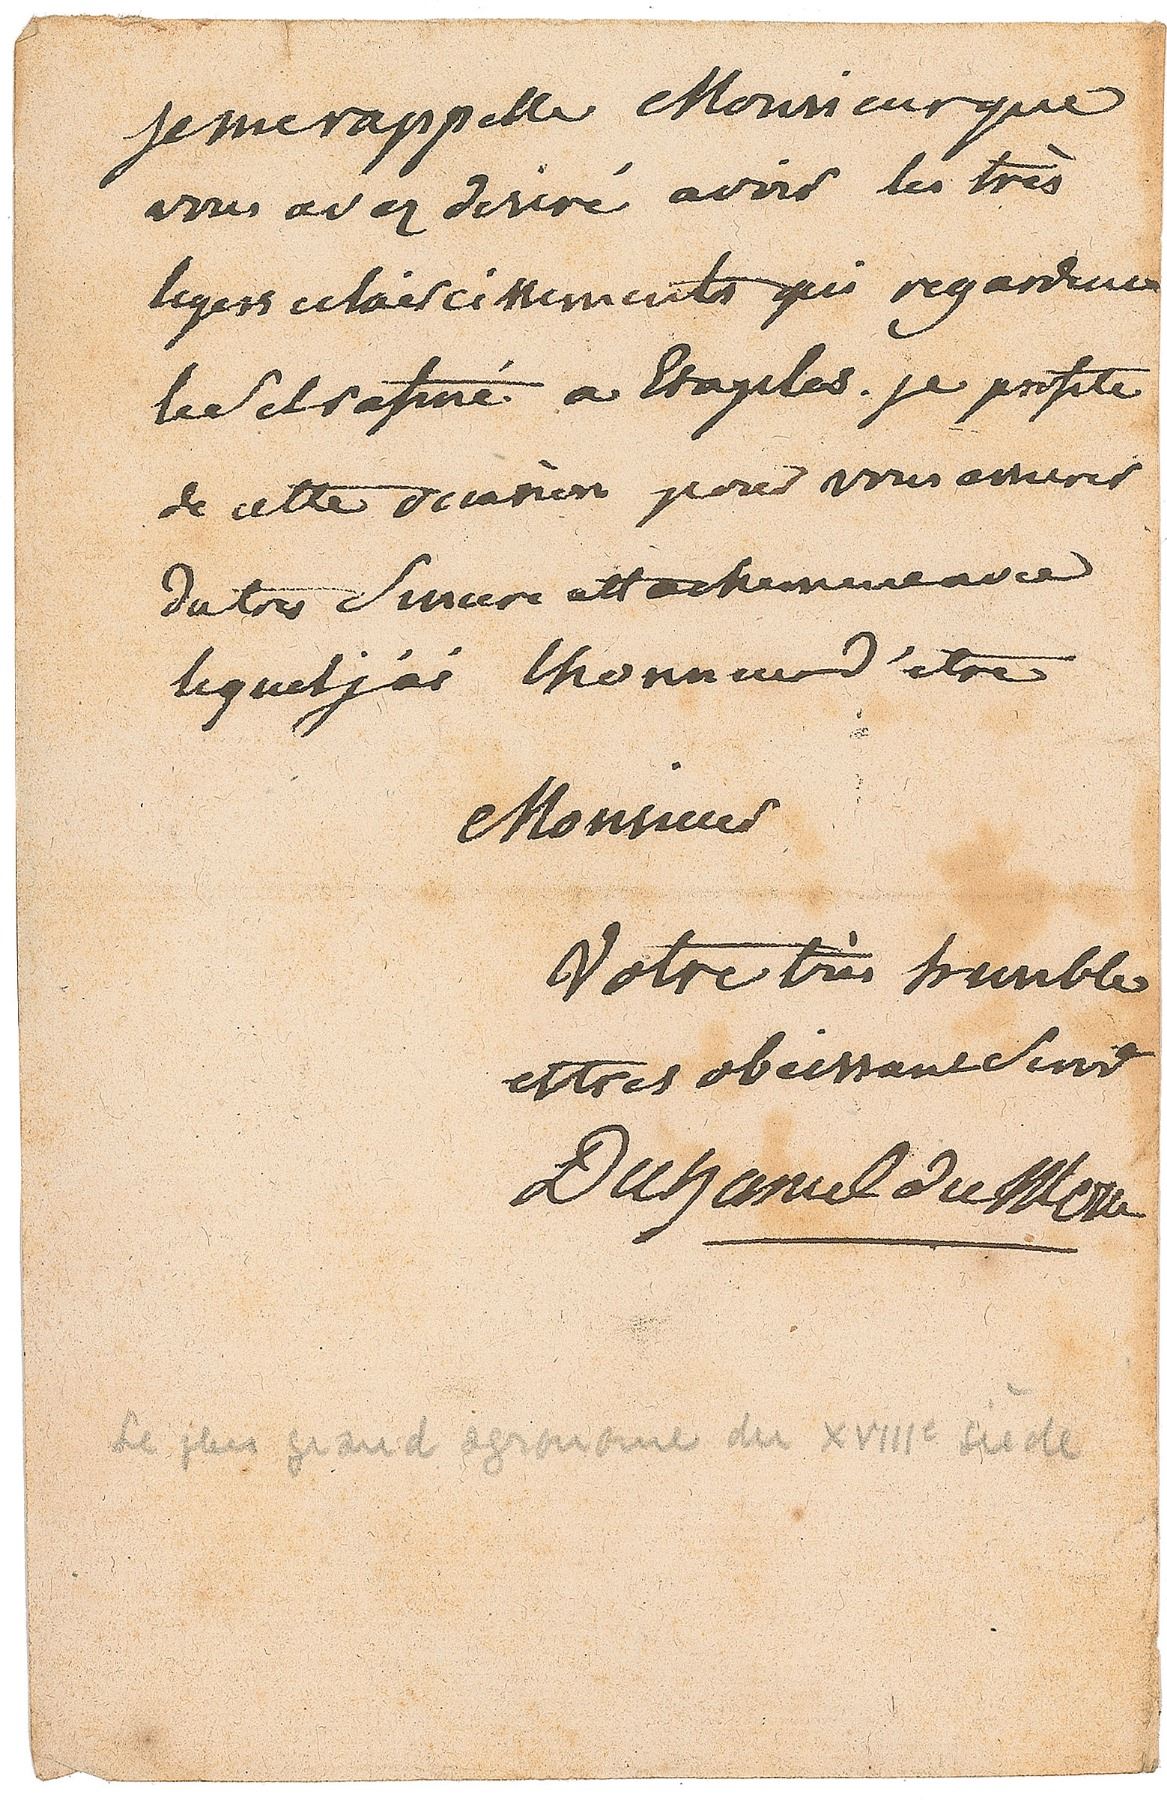 je me rappelle Monsieur que
vous avez desiré avoir les très
legers eclaircissements qui regardent
le Sel rafiné a Etaples. je profite
de cette occasion pour vous assurer
du tres Sincere attachement avec
lequel j'ai lhonneur d'etre
Monsieur
Votre très humble
et tres obeissant Servr
Duhamel du Monceau
Le plus grand agronome du XVIIIe siècle